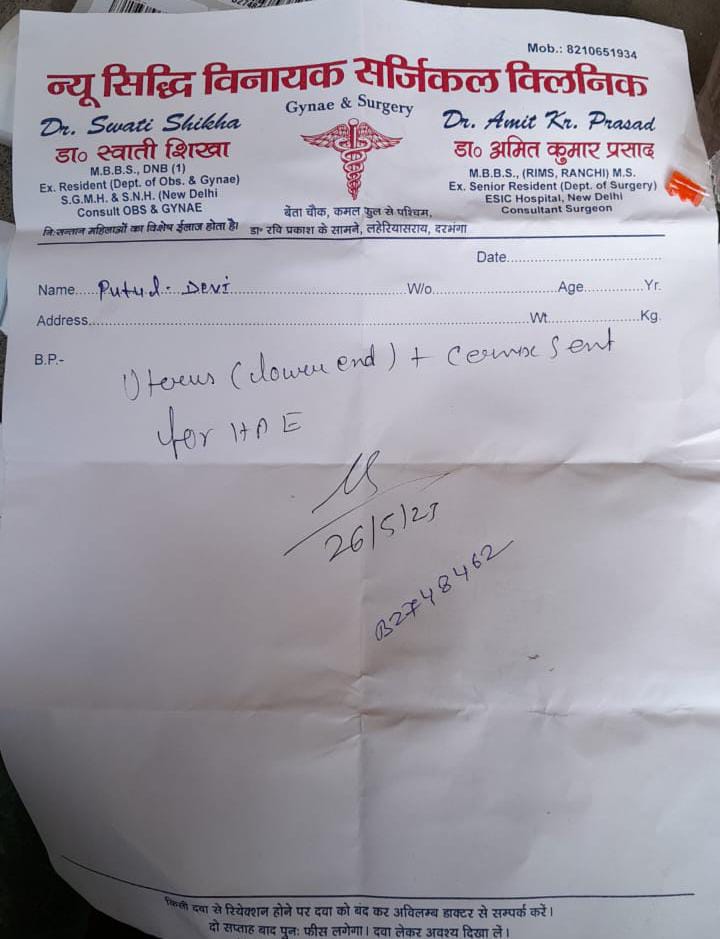 Mob.: 8210651934
न्यू सिद्धि विनायक सर्जिकल क्लिनिक
Gynae & Surgery
Dr. Swati Shikha
डा० स्वाती शिखा
M.B.B.S., DNB (1)
Ex. Resident (Dept. of Obs. & Gynae)
S.G.M.H. & S.N.H. (New Delhi
Consult OBS & GYNAE
निःसन्तान महिलाओं का विशेष ईलाज होता है।
Dr. Amit Kr. Prasad
डा० अमित कुमार प्रसाद
M.B.B.S., (RIMS, RANCHI) M.S.
Ex. Senior Resident (Dept. of Surgery)
ESIC Hospital, New Delhi
Consultant Surgeon
बेता चौक, कमल फुल से पश्चिम,
डा० रवि प्रकाश के सामने, लहेरियासराय, दरभंगा
Date
Name Putul. Devi W/o Age Yr.
Address Wt Kg.
B.P.-
Uterus (lower end) + Cervix Sent
for HPE
26/5/23
B2748462
किसी दवा से रियेक्शन होने पर दवा को बंद कर अविलम्ब डाक्टर से सम्पर्क करें।
दो सप्ताह बाद पुनः फीस लगेगा। दवा लेकर अवश्य दिखा लें।